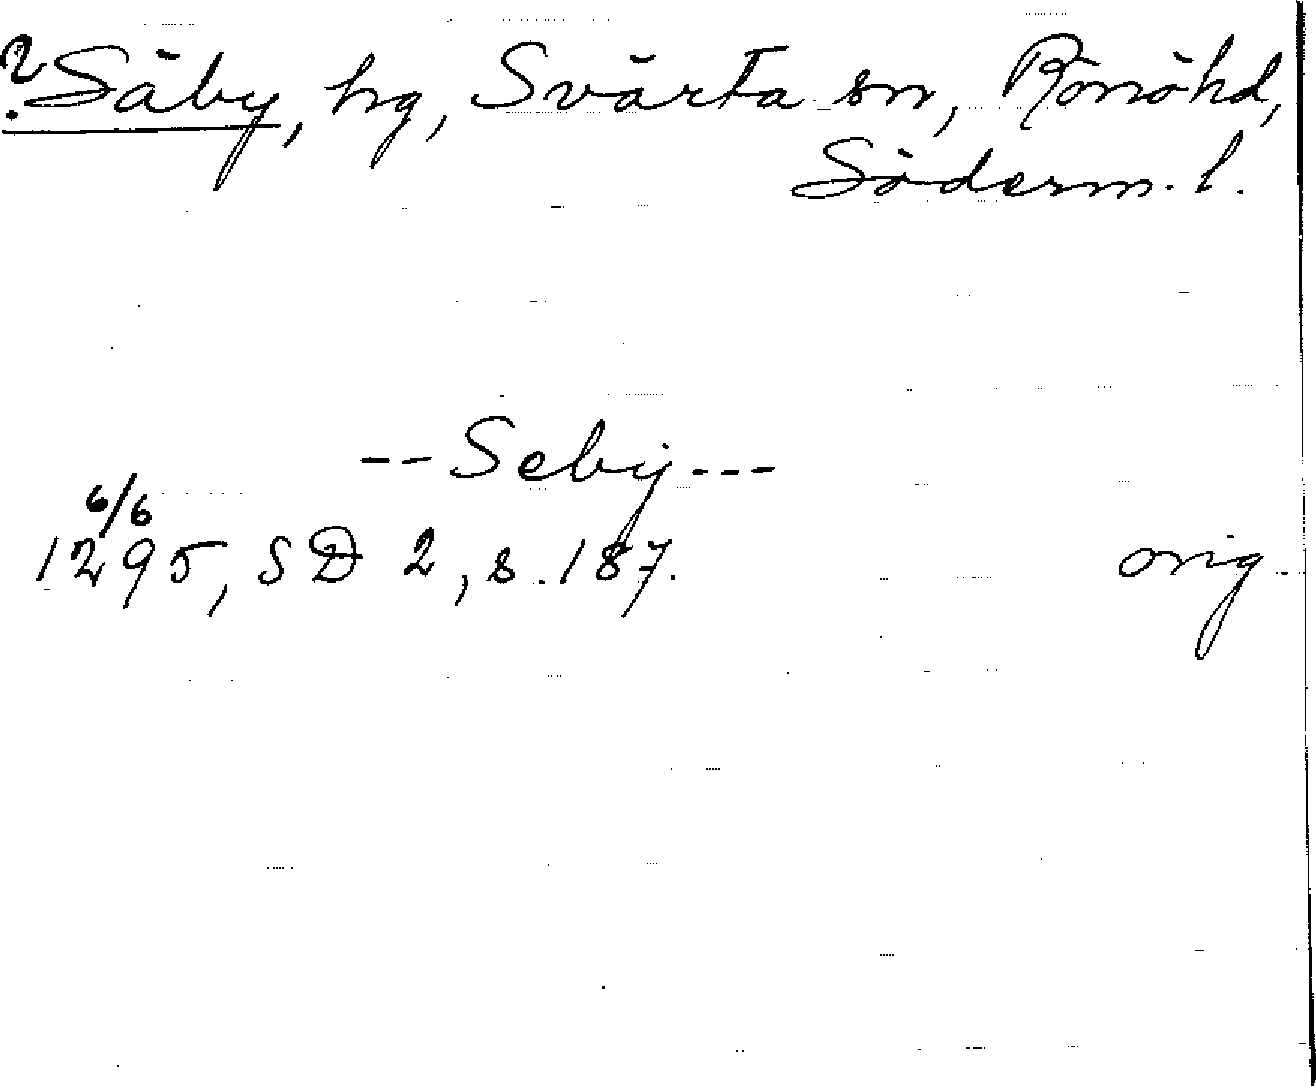 ?Säby, hg, Svärta sn, Rönöhd,
Söderm. l.
-- Seby ---
6/6
1295, SD 2, s. 187. orig